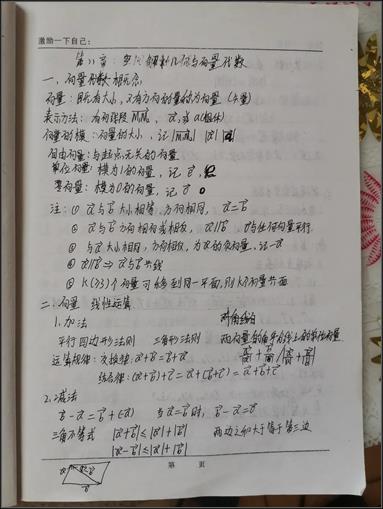 激励一下自己：
第八章：空间解析几何与向量代数
一、向量代数相关概念
向量：既有大小，又有方向的量称为向量（矢量）
表示方法：有向线段 M₁M₂， a⃗，或 a（粗体）
向量的模：向量的大小，记 |M₁M₂| |a⃗| |a|
自由向量：与起点无关的向量
单位向量：模为1的向量，记 e⃗
零向量：模为0的向量，记 0⃗ 0
注：① a⃗与b⃗大小相等，方向相同， a⃗=b⃗
② a⃗与b⃗方向相同或相反， a⃗∥b⃗ 0⃗与任何向量平行
③ 与a⃗大小相同，方向相反，为a⃗的负向量，记-a⃗
④ a⃗∥b⃗ ⇒ a⃗与b⃗共线
⑤ K(≥3)个向量可移到同一平面，则K个向量共面
二、向量 线性运算
1.加法
平行四边形法则 三角形法则 两向量的角平分线上的单位向量
运算规律：交换律：a⃗+b⃗=b⃗+a⃗
结合律：(a⃗+b⃗)+c⃗=a⃗+(b⃗+c⃗)=a⃗+b⃗+c⃗
2.减法
b⃗-a⃗=b⃗+(-a⃗) 当a⃗=b⃗时，b⃗-a⃗=0⃗
三角不等式 |a⃗+b⃗|≤|a⃗|+|b⃗| 两边之和大于等于第三边
|a⃗-b⃗|≤|a⃗|+|b⃗|
第 页